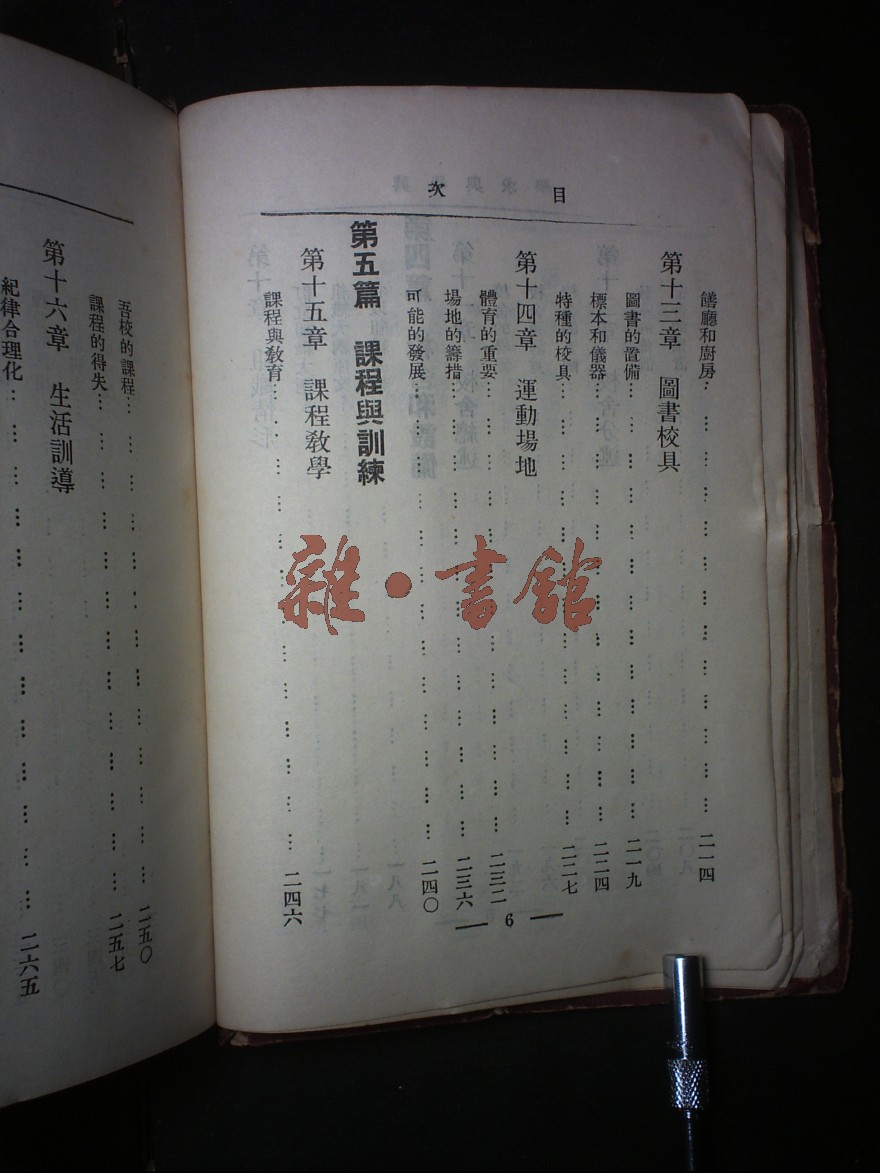 目次
饍廳和廚房… … … … … … … … … … … … … … … 二一四
第十三章 圖書校具
圖書的置備… … … … … … … … … … … … … … … 二一九
標本和儀器… … … … … … … … … … … … … … … 二二四
特種的校具… … … … … … … … … … … … … … … 二二七
第十四章 運動場地
體育的重要… … … … … … … … … … … … … … … 二三二
場地的籌措… … … … … … … … … … … … … … … 二三六
可能的發展… … … … … … … … … … … … … … … 二四〇
第五篇 課程與訓練
第十五章 課程教學
課程與教育… … … … … … … … … … … … … … … 二四六
— 6 —
吾校的課程… … … … … … … … … … … … … … … 二五〇
課程的得失… … … … … … … … … … … … … … … 二五七
第十六章 生活訓導
紀律合理化… … … … … … … … … … … … … … … 二六五
雜·書館